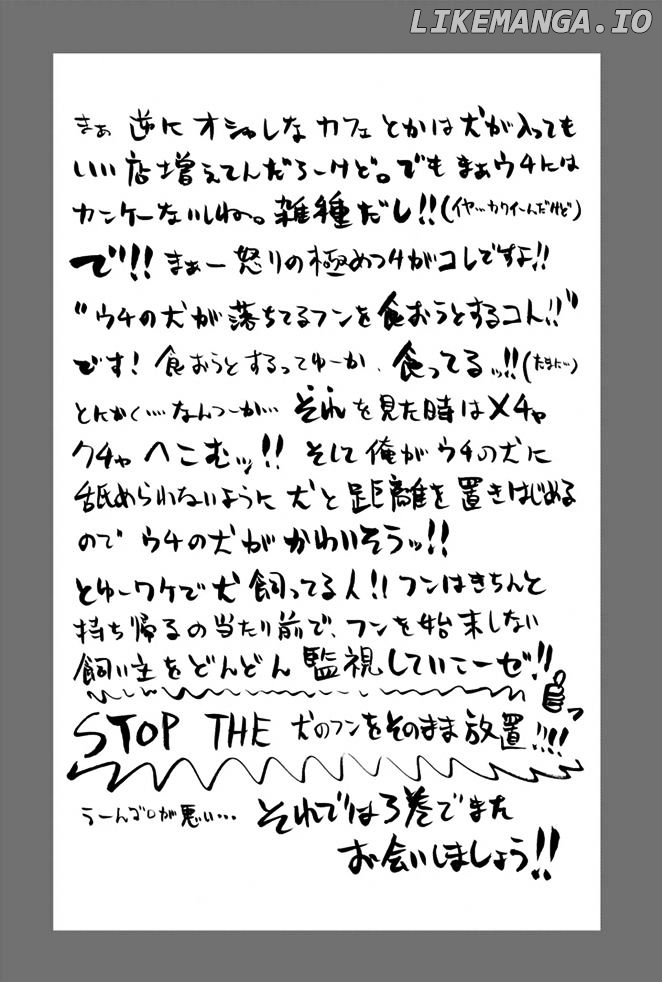 LIKEMANGA.IO
まぁ 逆に オシャレな カフェ とかは 犬が入っても
いい 店 増えてんだろーけど。でも まぁウチには
カンケーないしね。雑種だし!!(イヤ…カワイーんだけど)
で!! まぁー 怒りの極めつけがコレですよ!!
“ウチの犬が落ちてるフンを食おうとするコト!!”
です! 食おうとするってゆーか、食ってるッ!!(たまに…)
とにかく…なんつーか… それを見た時はメチャ
クチャ へこむッ!! そして俺がウチの犬に
舐められないように 犬と距離を置きはじめる
ので ウチの犬が かわいそうッ!!
とゆーワケで犬 飼ってる人!! フンはきちんと
持ち帰るの当たり前で、フンを始末しない
飼い主をどんどん 監視していこーゼ!!
STOP THE 犬のフンをそのまま放置!!!!
うーんゴロが悪い… それでは3巻でまた
お会いしましょう!!